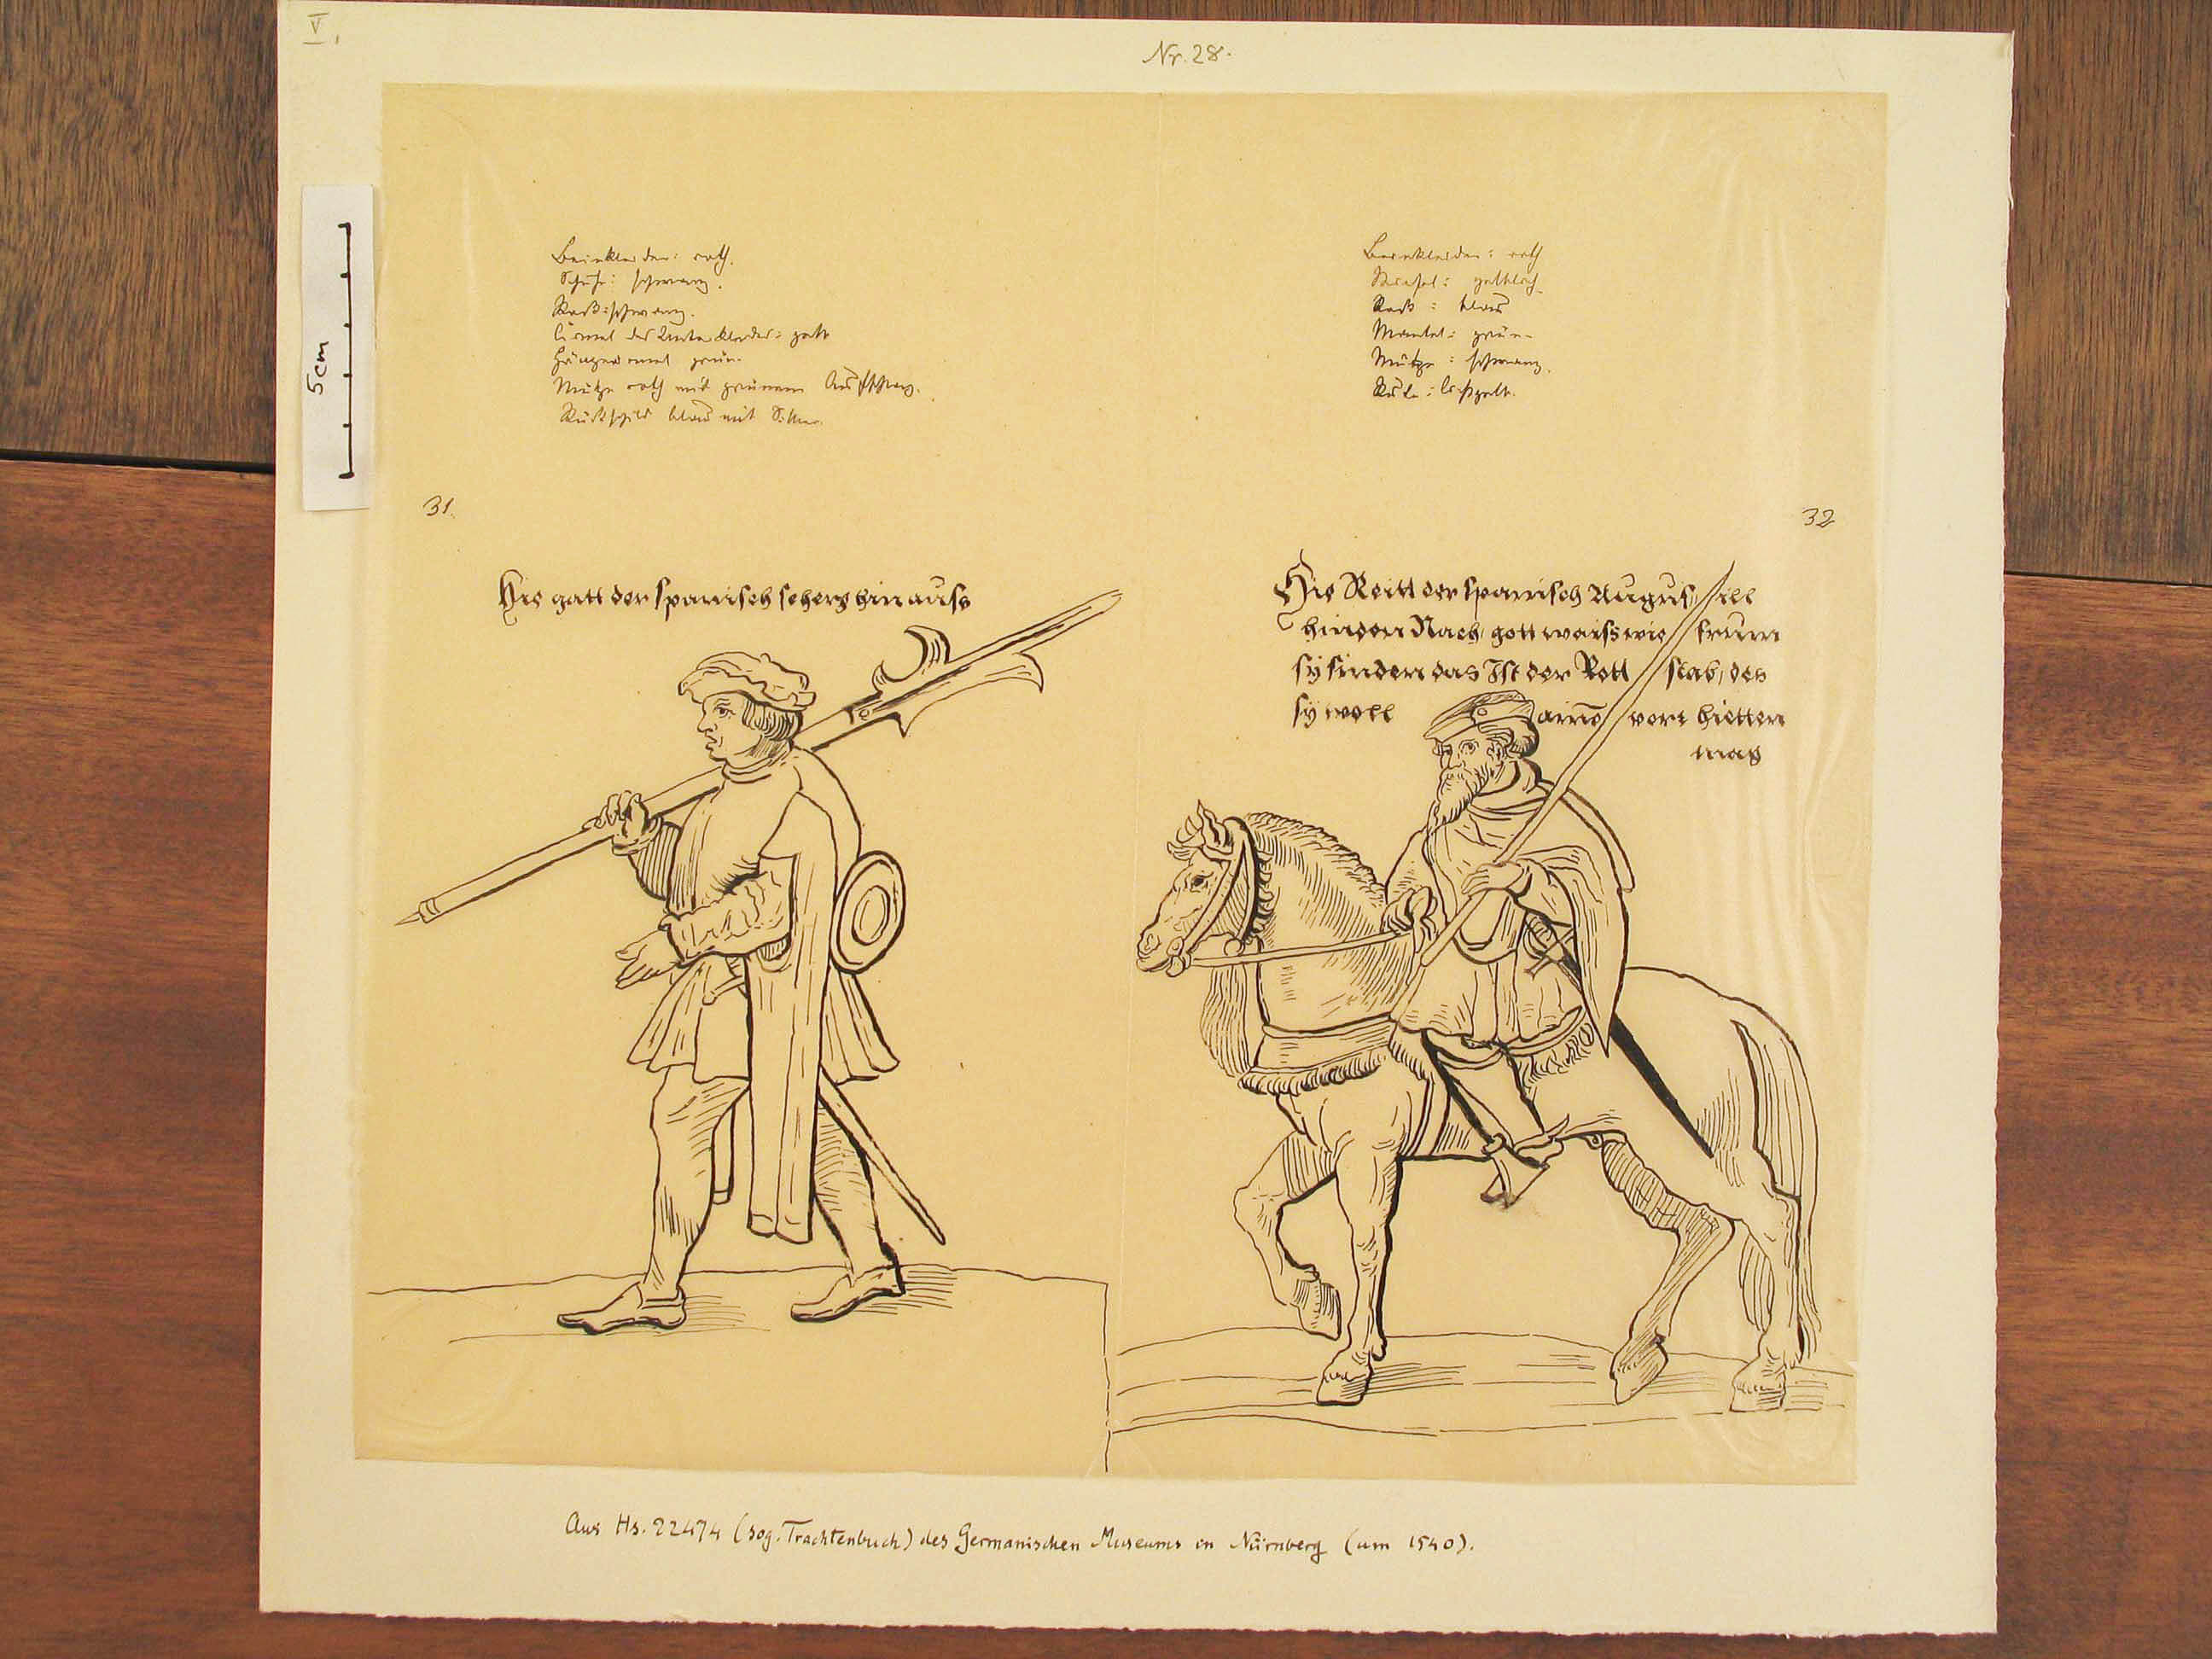 V,
Nr. 28.
5cm
Beinkleider: roth.
Schuhe: schwarz.
Rock: schwarz.
Ärmel des Unterkleides: gelb
Hängeärmel grün.
Mütze roth mit grünem Aufschlag.
Rückschild blau mit Silber.
Beinkleider: roth
Stiefel: gelblich
Rock: blau
Mantel: grün
Mütze: schwarz.
Rute: hellgelb.
31.
32
Hie gatt der spanisch scherg hinauss
Hie Reitt der spanisch Augusill
hinden Nach, gott waiss wie frum
sÿ sinden das Ist der Rott stab, des
sÿ woll ainō vort bietten
mag
Aus Hs. 22474 (sog. Trachtenbuch) des Germanischen Museums in Nürnberg (um 1540).